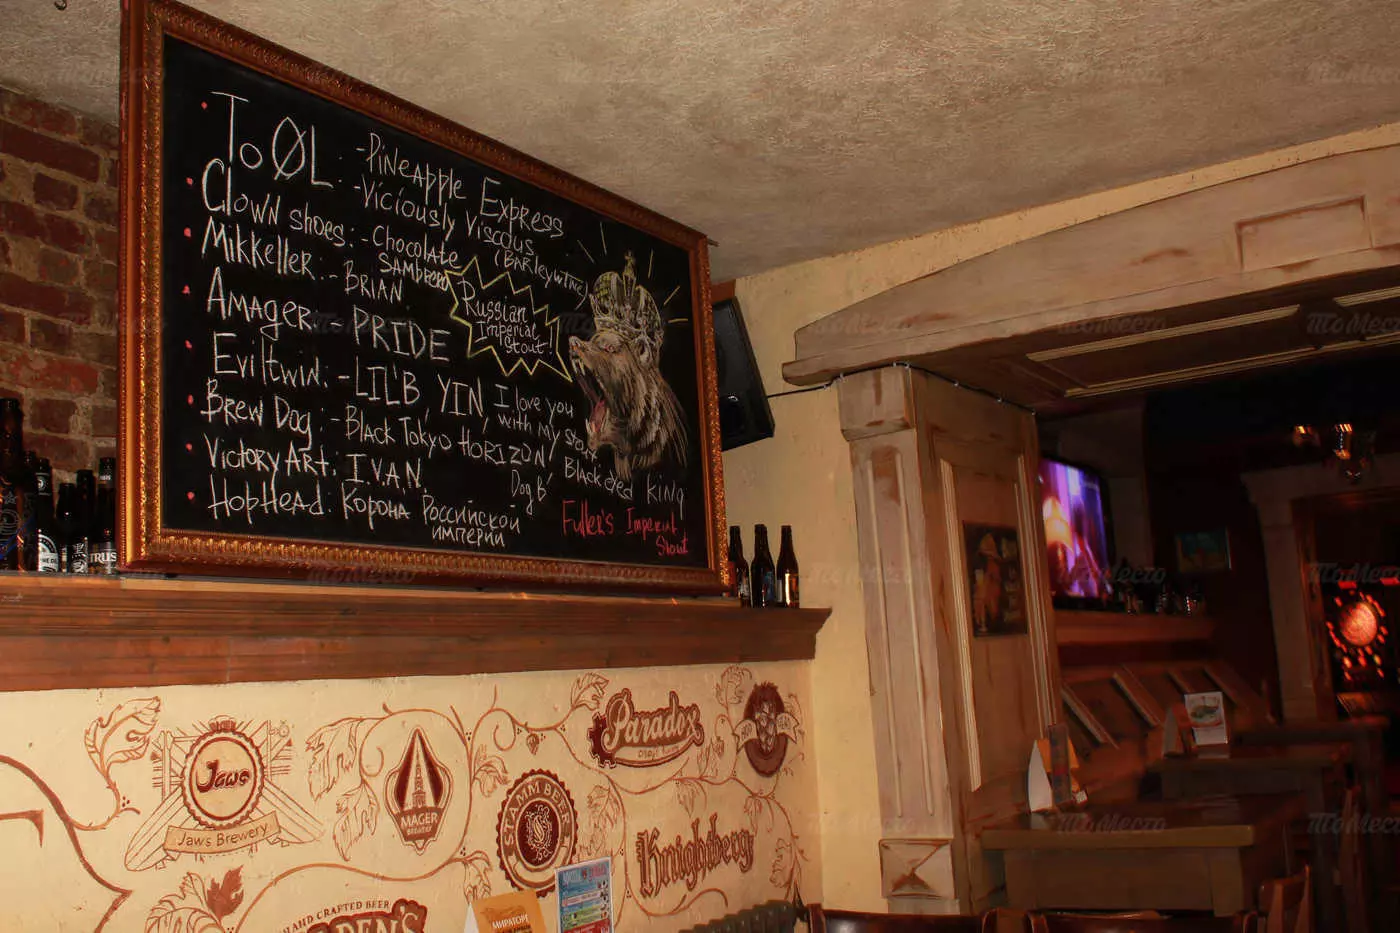 To ØL: -Pineapple Express
-Viciously Viscous
(Barleywine)
Clown shoes: -Chocolate
Sambrero
Mikkeller: -BRIAN
Russian
Imperial
Stout!
Amager: PRIDE
Eviltwin: -LIL'B, YIN, I love you
with my stout
Brew Dog: -Black Tokyo HORIZON,
Dog B'
Black eyed king
VictoryArt: I.V.A.N.
HopHead: Корона Российской
империи
Fuller's Imperial
Stout
Jaws
Jaws Brewery
MAGER
BREWERY
STAMM BEER
Paradox
Knightberg
HAND CRAFTED BEER
DEN'S
МИРАТОРГ
ТоМесто